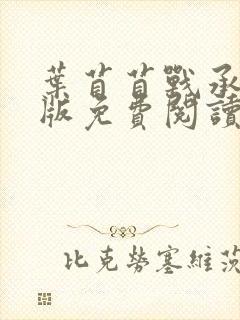 葉苜苜戰承
版免費閱讀
比克勞塞維茨